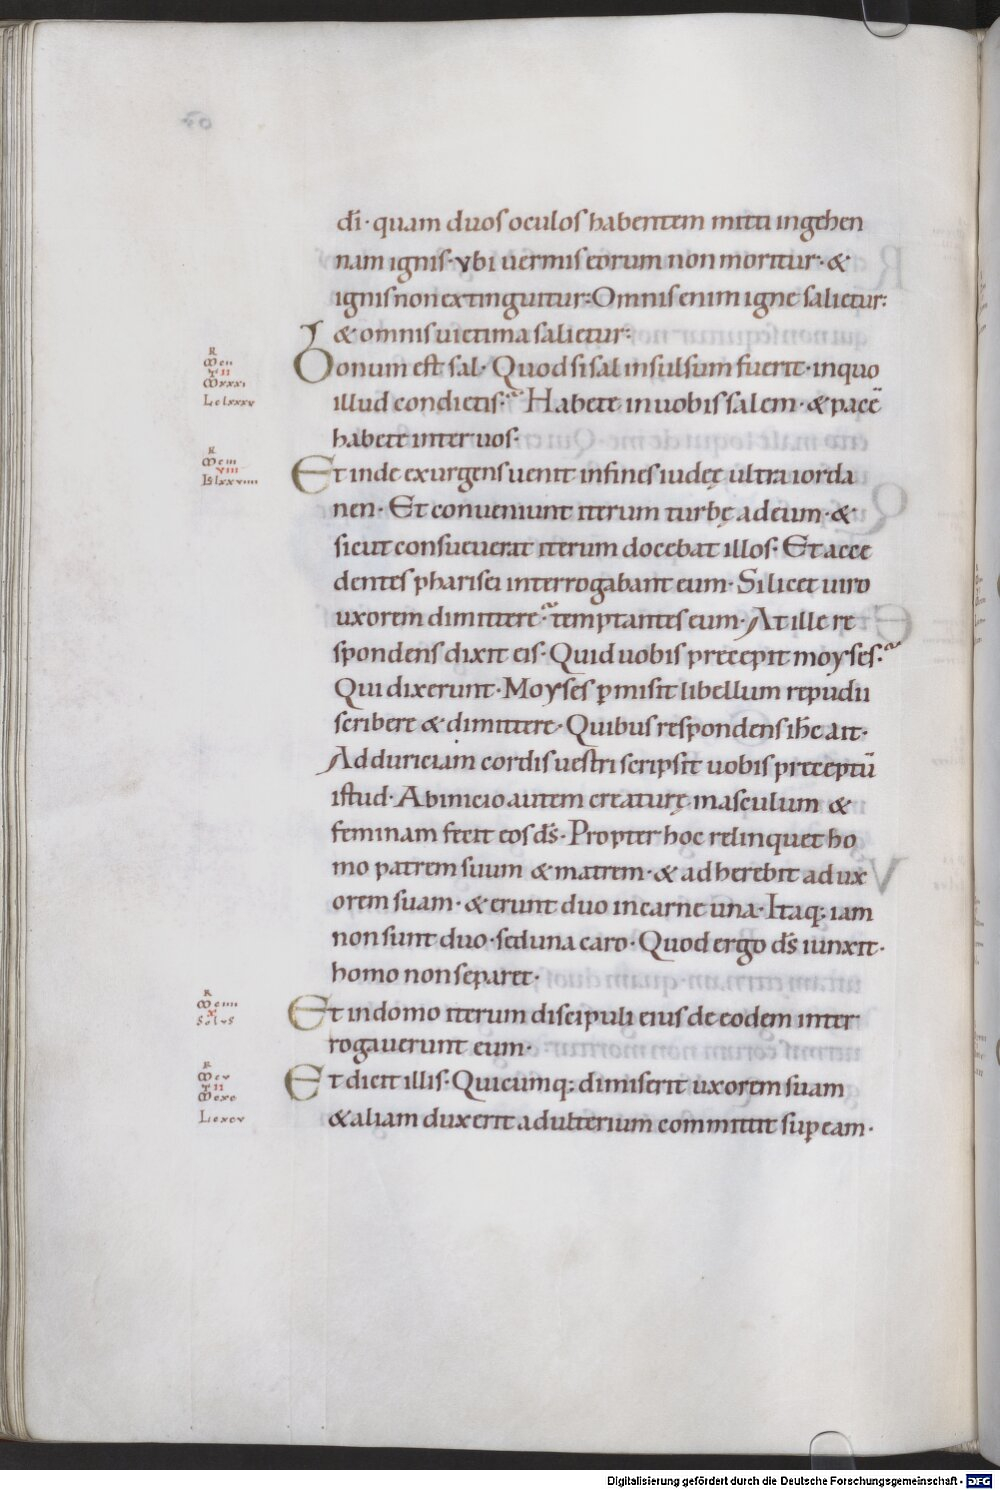 dī· quam duos oculos habentem mitti in gehen
nam ignis· vbi uermis eorum non moritur· &
ignis non extinguitur: Omnis enim igne salietur:
& omnis uictima salietur:
Bonum est sal· Quod si sal insulsum fuerit· in quo
illud condietis? Habete in uobis salem· & pacē
habete inter uos·
Et inde exurgens uenit in fines iudeę ultra iorda
nen· Et conueniunt iterum turbę ad eum· &
sicut consueuerat iterum docebat illos· Et acce
dentes pharisei interrogabant eum· Si licet uiro
uxorem dimittere? temptantes eum· At ille re
spondens dixit eis· Quid uobis precepit moyses?
Qui dixerunt· Moyses pmisit libellum repudii
scribere & dimittere· Quibus respondens ihc ait·
Ad duriciam cordis uestri scripsit uobis preceptū
istud· Ab inicio autem creaturę masculum &
feminam fecit eos ds̄· Propter hoc relinquet ho
mo patrem suum & matrem· & adherebit ad ux
orem suam· & erunt duo in carne una· Itaq; iam
non sunt duo· sed una caro· Quod ergo ds̄ iunxit·
homo non separet·
Et in domo iterum discipuli eius de eodem inter
rogauerunt eum·
Et dicit illis· Quicumq; dimiserit uxorem suam
& aliam duxerit adulterium committit sup eam·
Digitalisierung gefördert durch die Deutsche Forschungsgemeinschaft - DFG